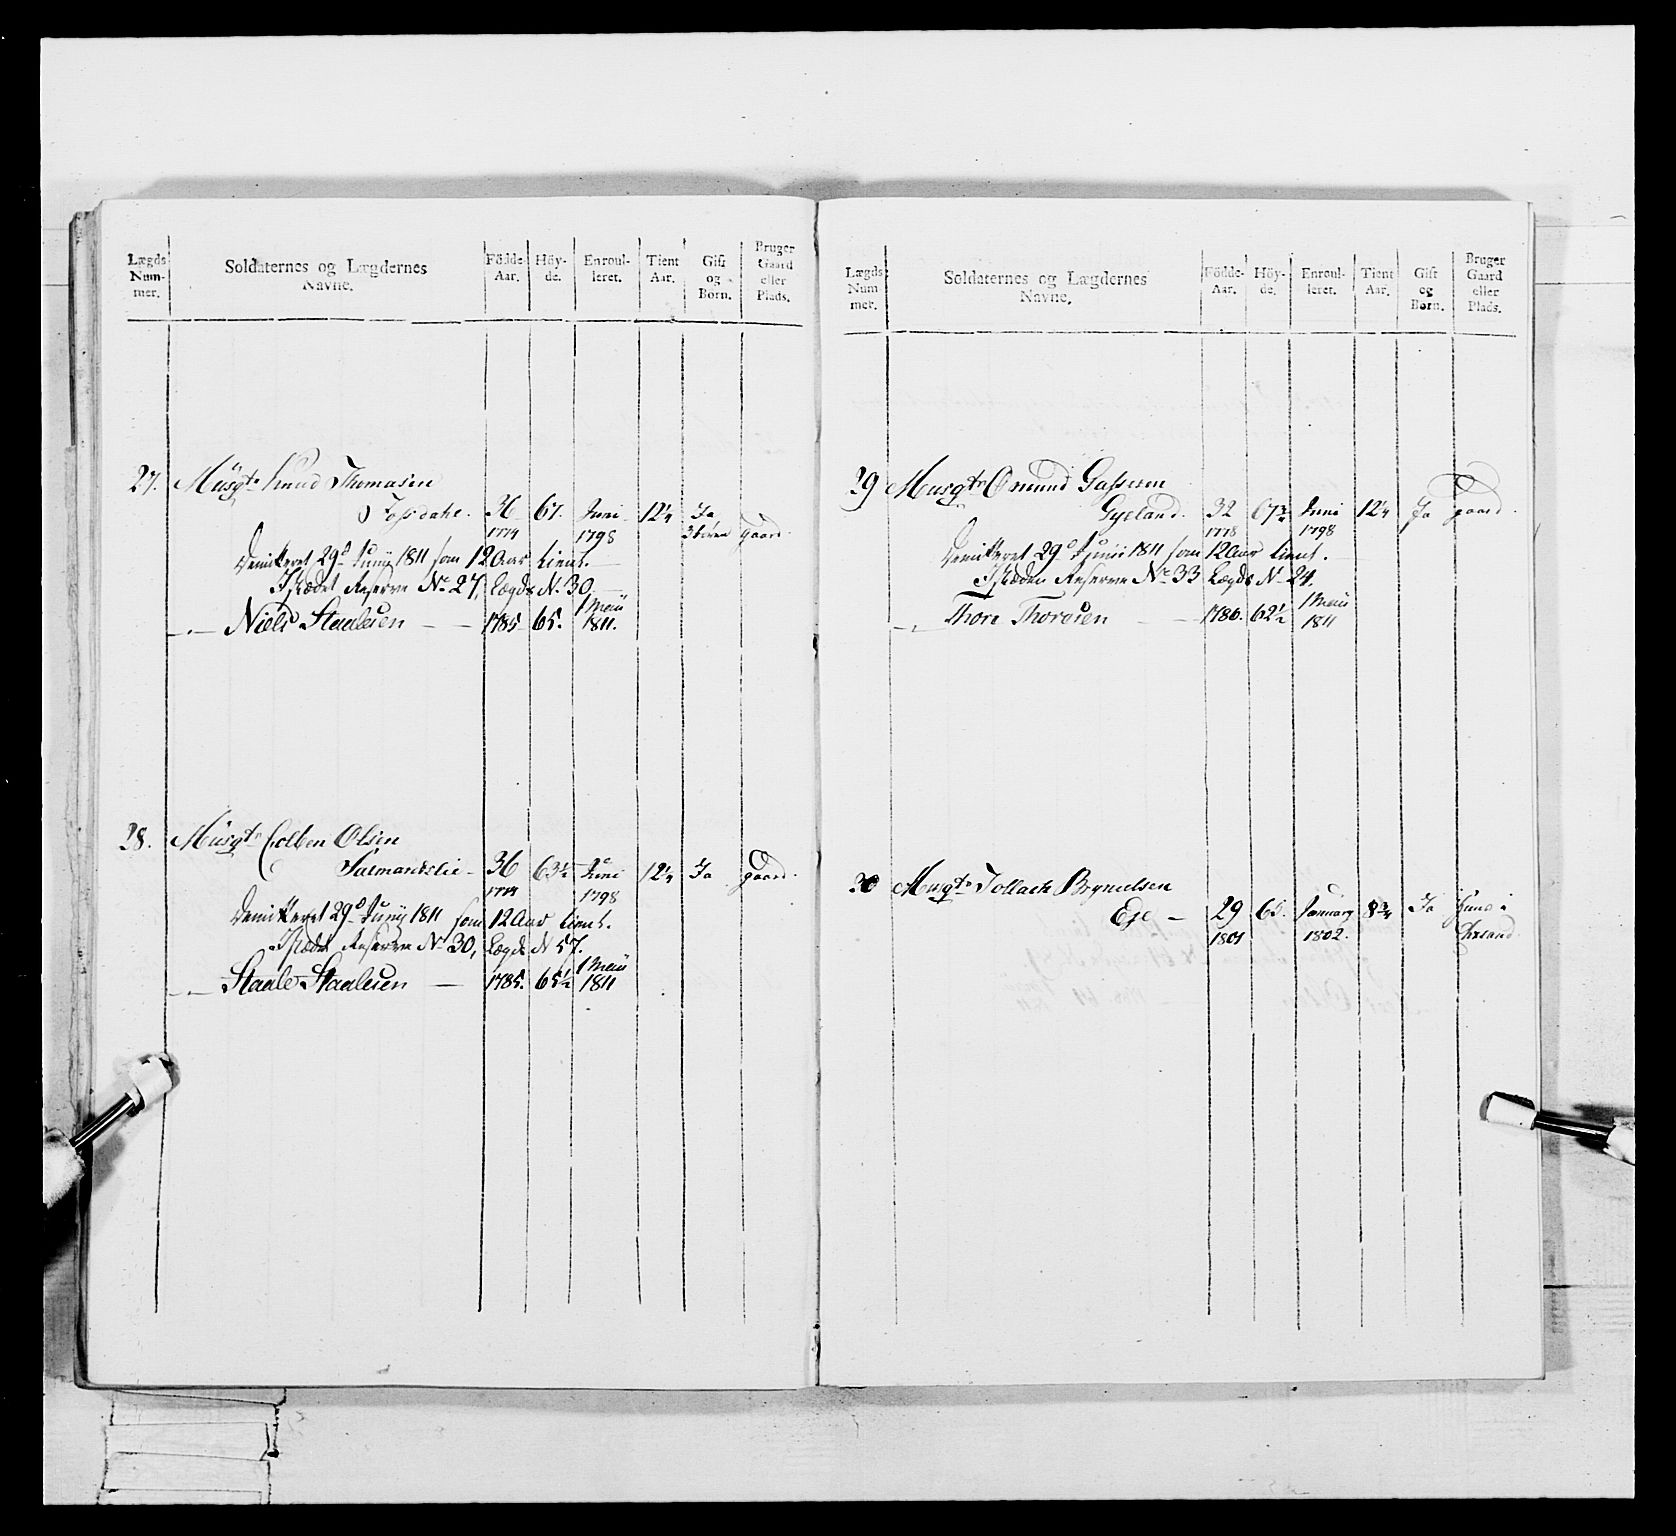 Lægds Num- mer.
Soldaternes og Lægdernes Navne.
Födde- Aar.
Höy- de.
Enroul- leret.
Tient Aar.
Gift og Born.
Bruger Gaard eller Plads.
27. Musqt. Knud Thomasen
Fossdahl. 36 67. Juni 12¼ Ja
1774 1798 3 börn gaard.
Demitteret 29d Junij 1811 som 12 Aar tient.
Isteden Reserve No 27, Lægds N. 30.
Niels Staalesen — 1785. 65. 1 Maii 1811.
28. Musqt. Colben Olsen
Salmandslie - 36 63½ Juni 12¼ Ja gaard.
1774 1798
Demitteret 29d Junij 1811 som 12 Aar tient.
Istedet Reserve No 30, Lægds N 57.
Staale Staalesen — 1785. 65½ 1 Maii 1811
Lægds Num mer.
Soldaternes og Lægdernes Navne.
Födde- Aar.
Höy- de.
Enroul- leret.
Tient Aar.
Gift og Børn.
Bruger Gaard eller Plads.
29 Musqt. Omund
Gyeland. 32 Juni 12¼ Ja gaard.
1778 1798
Demitteret 29d Junii 1811 som 12 Aar tient.
Isteden Reserve No 33 Lægds N 24.
Thore Thorsen — 1786. 62½ 1 Maii 1811
30 Musqt. Tollach Brynelsen
Eje — 29 65. January 8¾ Ja Huus i
1801 1802. Chrsand.